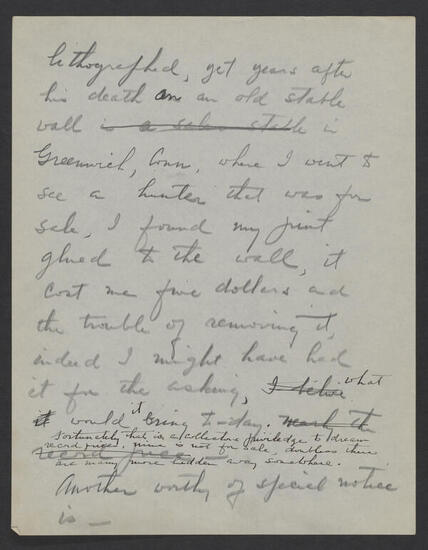 lithographed, yet years after
his death on an old stable
wall is a sales stable in
Greenwich, Conn, where I went to
see a hunter that was for
sale, I found my print
glued to the wall, it
cost me five dollars and
the trouble of removing it,
indeed I might have had
it for the asking, I believe what
it would it bring to-day.
Fortunately that is a collectors privilege to dream
record prices. mine is not for sale, doubtless there
record price
are many more hidden away somewhere.
Another worthy of special notice
is —